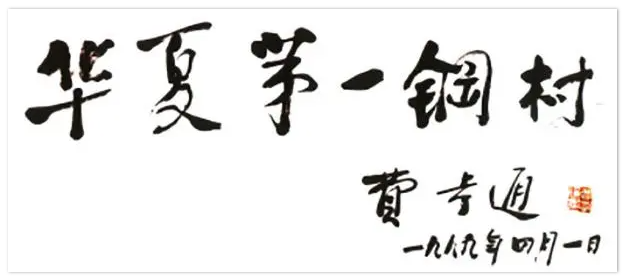 华夏第一鋼村
費孝通
一九八九年四月一日